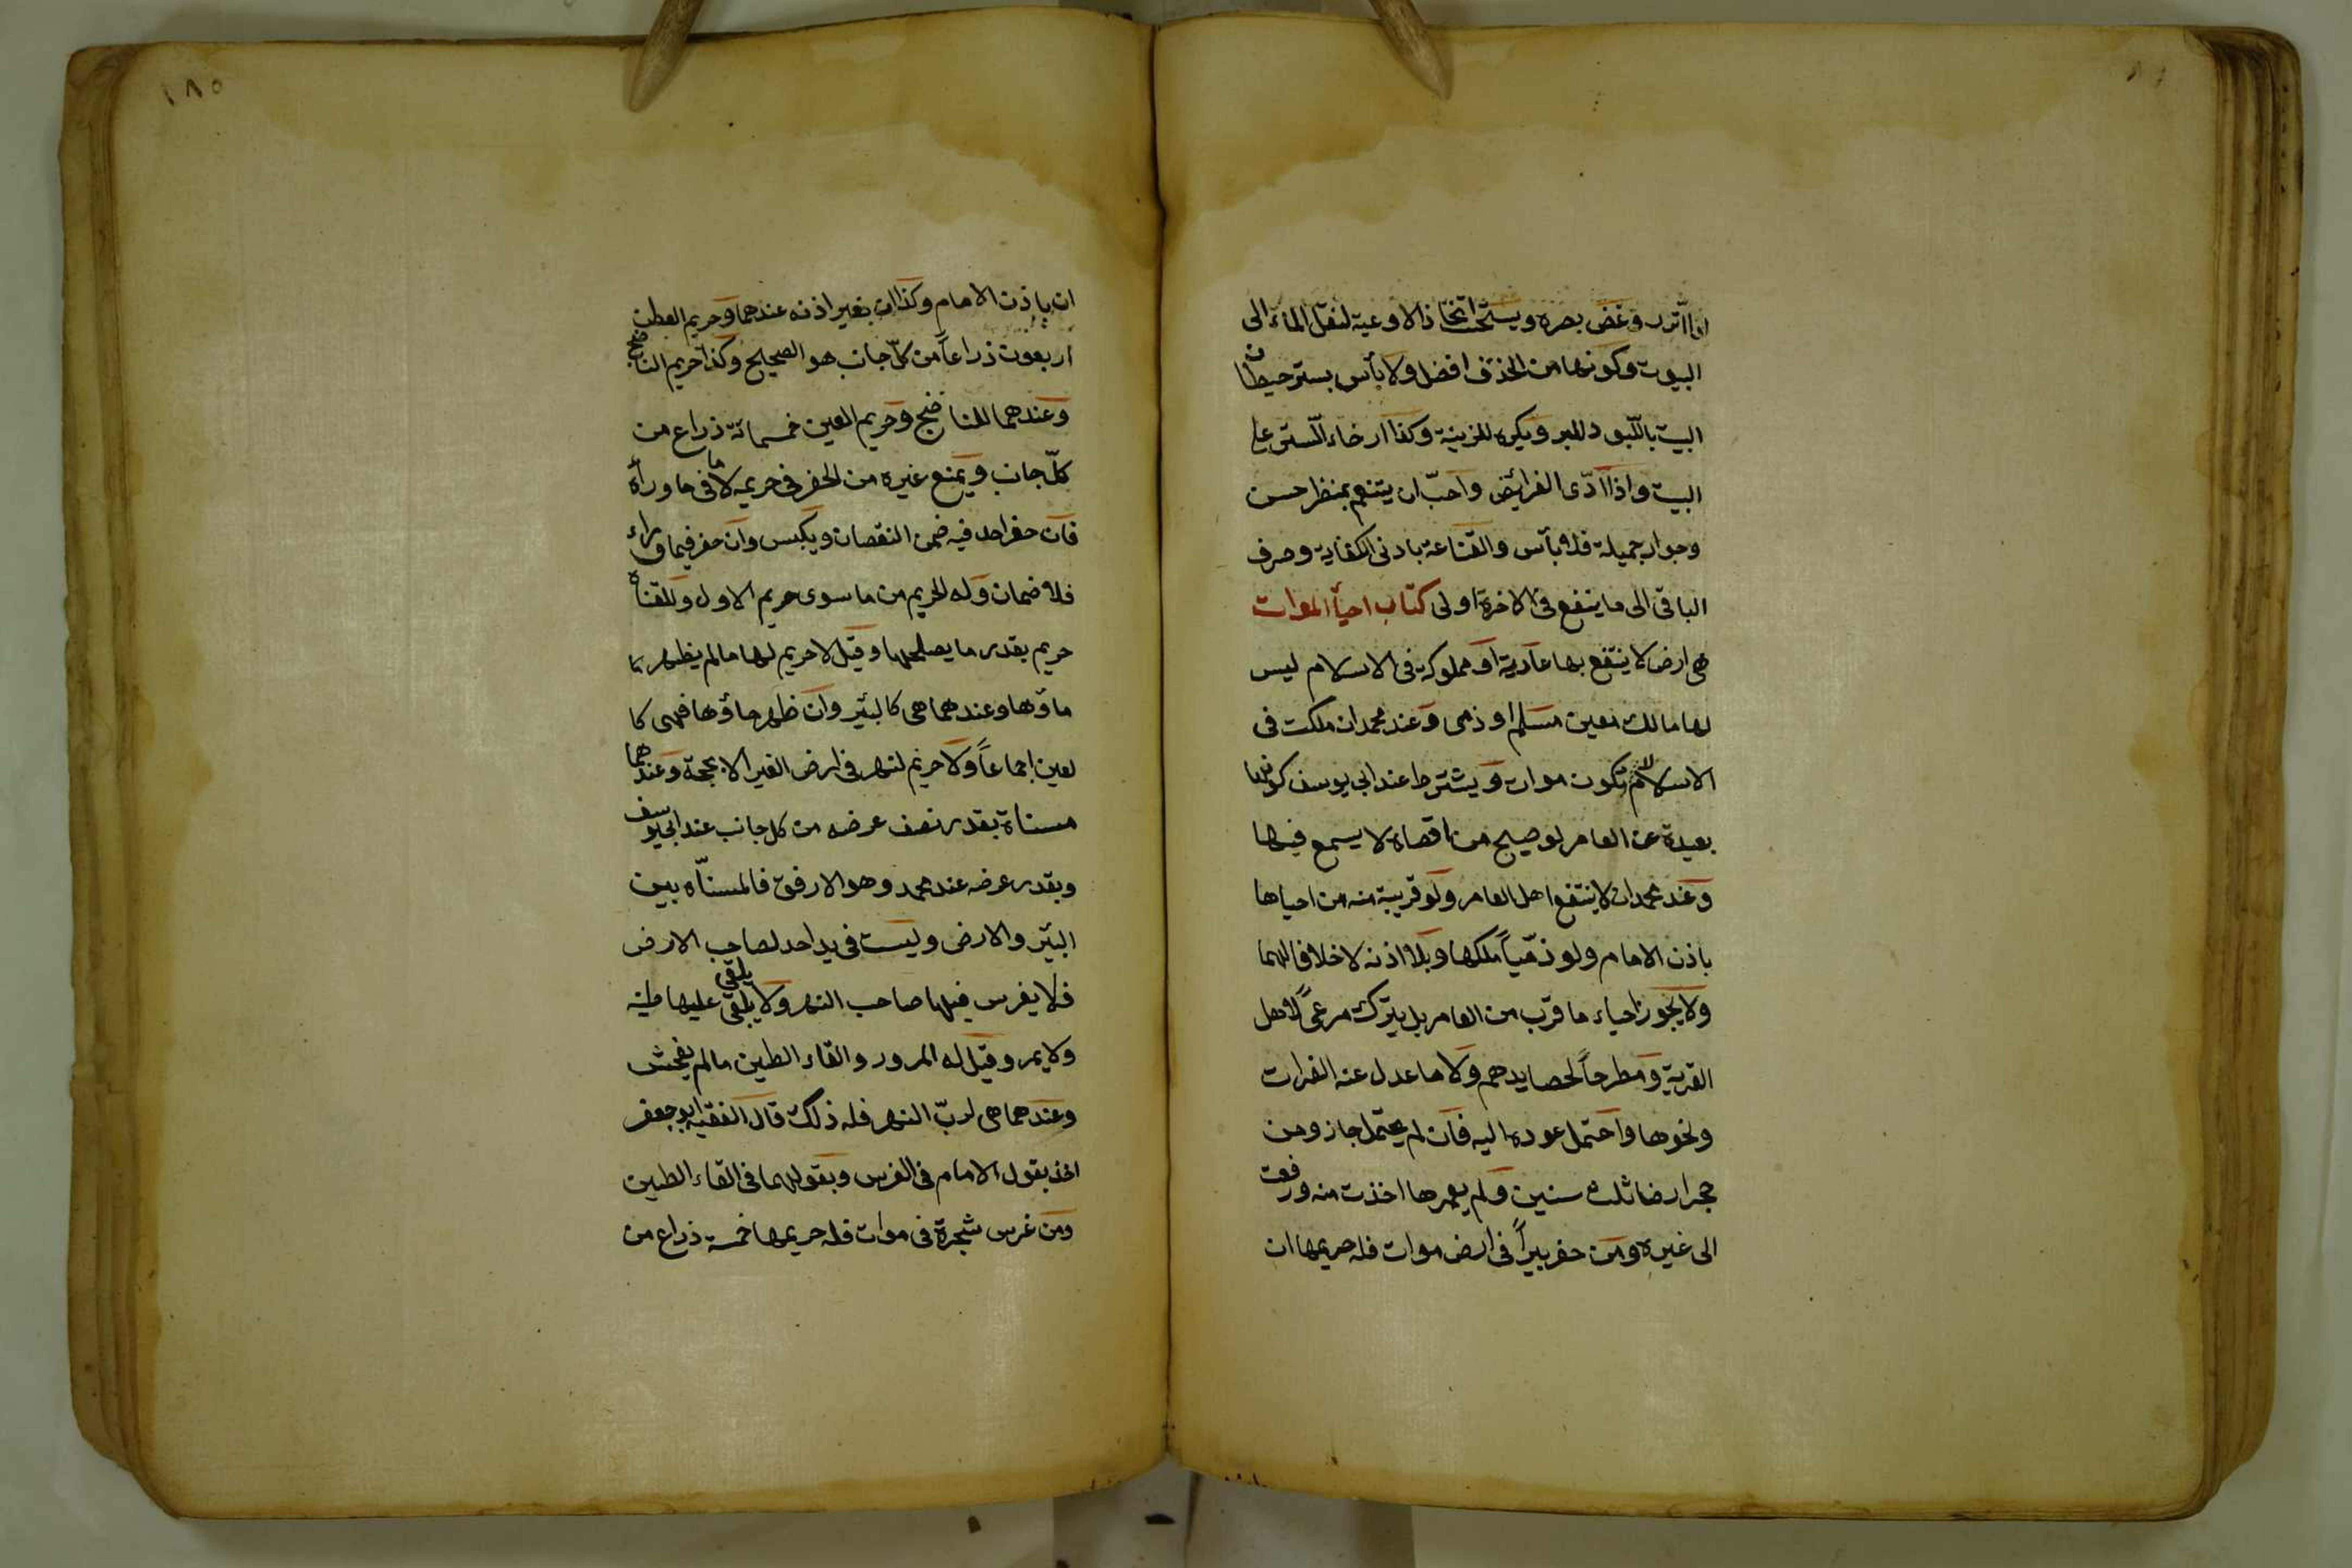 اذا اتزر وغض بصره ويستحب اتخاذ الاوعية لنقل الماء الى
البيوت وكونها من الخذف افضل ولا بأس بستر حيطان
البيت باللبود للبرد ويكره للزينة وكذا ارخاء الستر على
البيت واذا ادّى الفرائض واحبّ ان يتنعم بمنظر حسن
وجوار جميلة فلا بأس والقناعة بادنى الكفاية وصرف
الباقى الى ما ينفع فى الاخرة اولى كتاب احيأ الموات
هى ارض لا ينتفع بها عادية او مملوكة فى الاسلام ليس
لها مالك معين مسلم او ذمى وعند محمد ان ملكت فى
الاسلام لا تكون موات ويشترط عند ابى يوسف كونها
بعيدة عن العامر لو صيح من اقصاه لا يسمع فيها
وعند محمد ان لا ينتفع اهل العامر ولو قريبة منه من احياها
باذن الامام ولو ذمّياً ملكها وبلا اذنه لا خلافا لهما
ولا يجوز احياء ما قرب من العامر بل يترك مرعىً لاهل
القرية ومطرحاً لحصايدهم ولا ما عدل عنه الفرات
ونحوها واحتمل عوده اليه فان لم يحتمل جاز ومن
حجر ارضا ثلث سنين ولم يعمرها اخذت منه ودفعت
الى غيره ومن حفر بيراً فى ارض موات فله حريمها ان
١٨٥
ان باذن الامام وكذا ان بغير اذنه عندهما وحريم العطن
اربعون ذراعاً من كلّ جانب هو الصحيح وكذا حريم الناضح
وعندهما للناضح وحريم العين خمسمائة ذراع من
كلّ جانب ويمنع غيره من الحفر فى حريمه لا فى ما وراه
فان حفر احد فيه ضمن النقصان ويكبس وان حفر فيما وراء
فلا ضمان وله الحريم من ما سوى حريم الاول وللقناة
حريم بقدر ما يصلحها وقيل لا حريم لها ما لم يظهر
ماؤها وعندهما هى كالبئر وان ظهر ماؤها فهى كا
لعين اجماعاً ولا حريم لنهر فى ارض الغير الا بحجة وعندهما
مسناة بقدر نصف عرضه من كل جانب عند ابى يوسف
وبقدر عرضه عند محمد وهو الارفق فالمسنّاه بين
البئر والارض وليست فى يد احد لصاحب الارض
فلا يغرس فيها صاحب النهر ولا يلقى يلقى عليها طينه
ولا يمر وقيل له المرور والقاء الطين ما لم يفحش
وعندهما هى لربّ النهر فله ذلك قال الفقيه ابو جعفر
اخذ بقول الامام فى الغرس وبقولهما فى القاء الطين
ومن غرس شجرة فى موات فله حريمها خمسة ذراع من